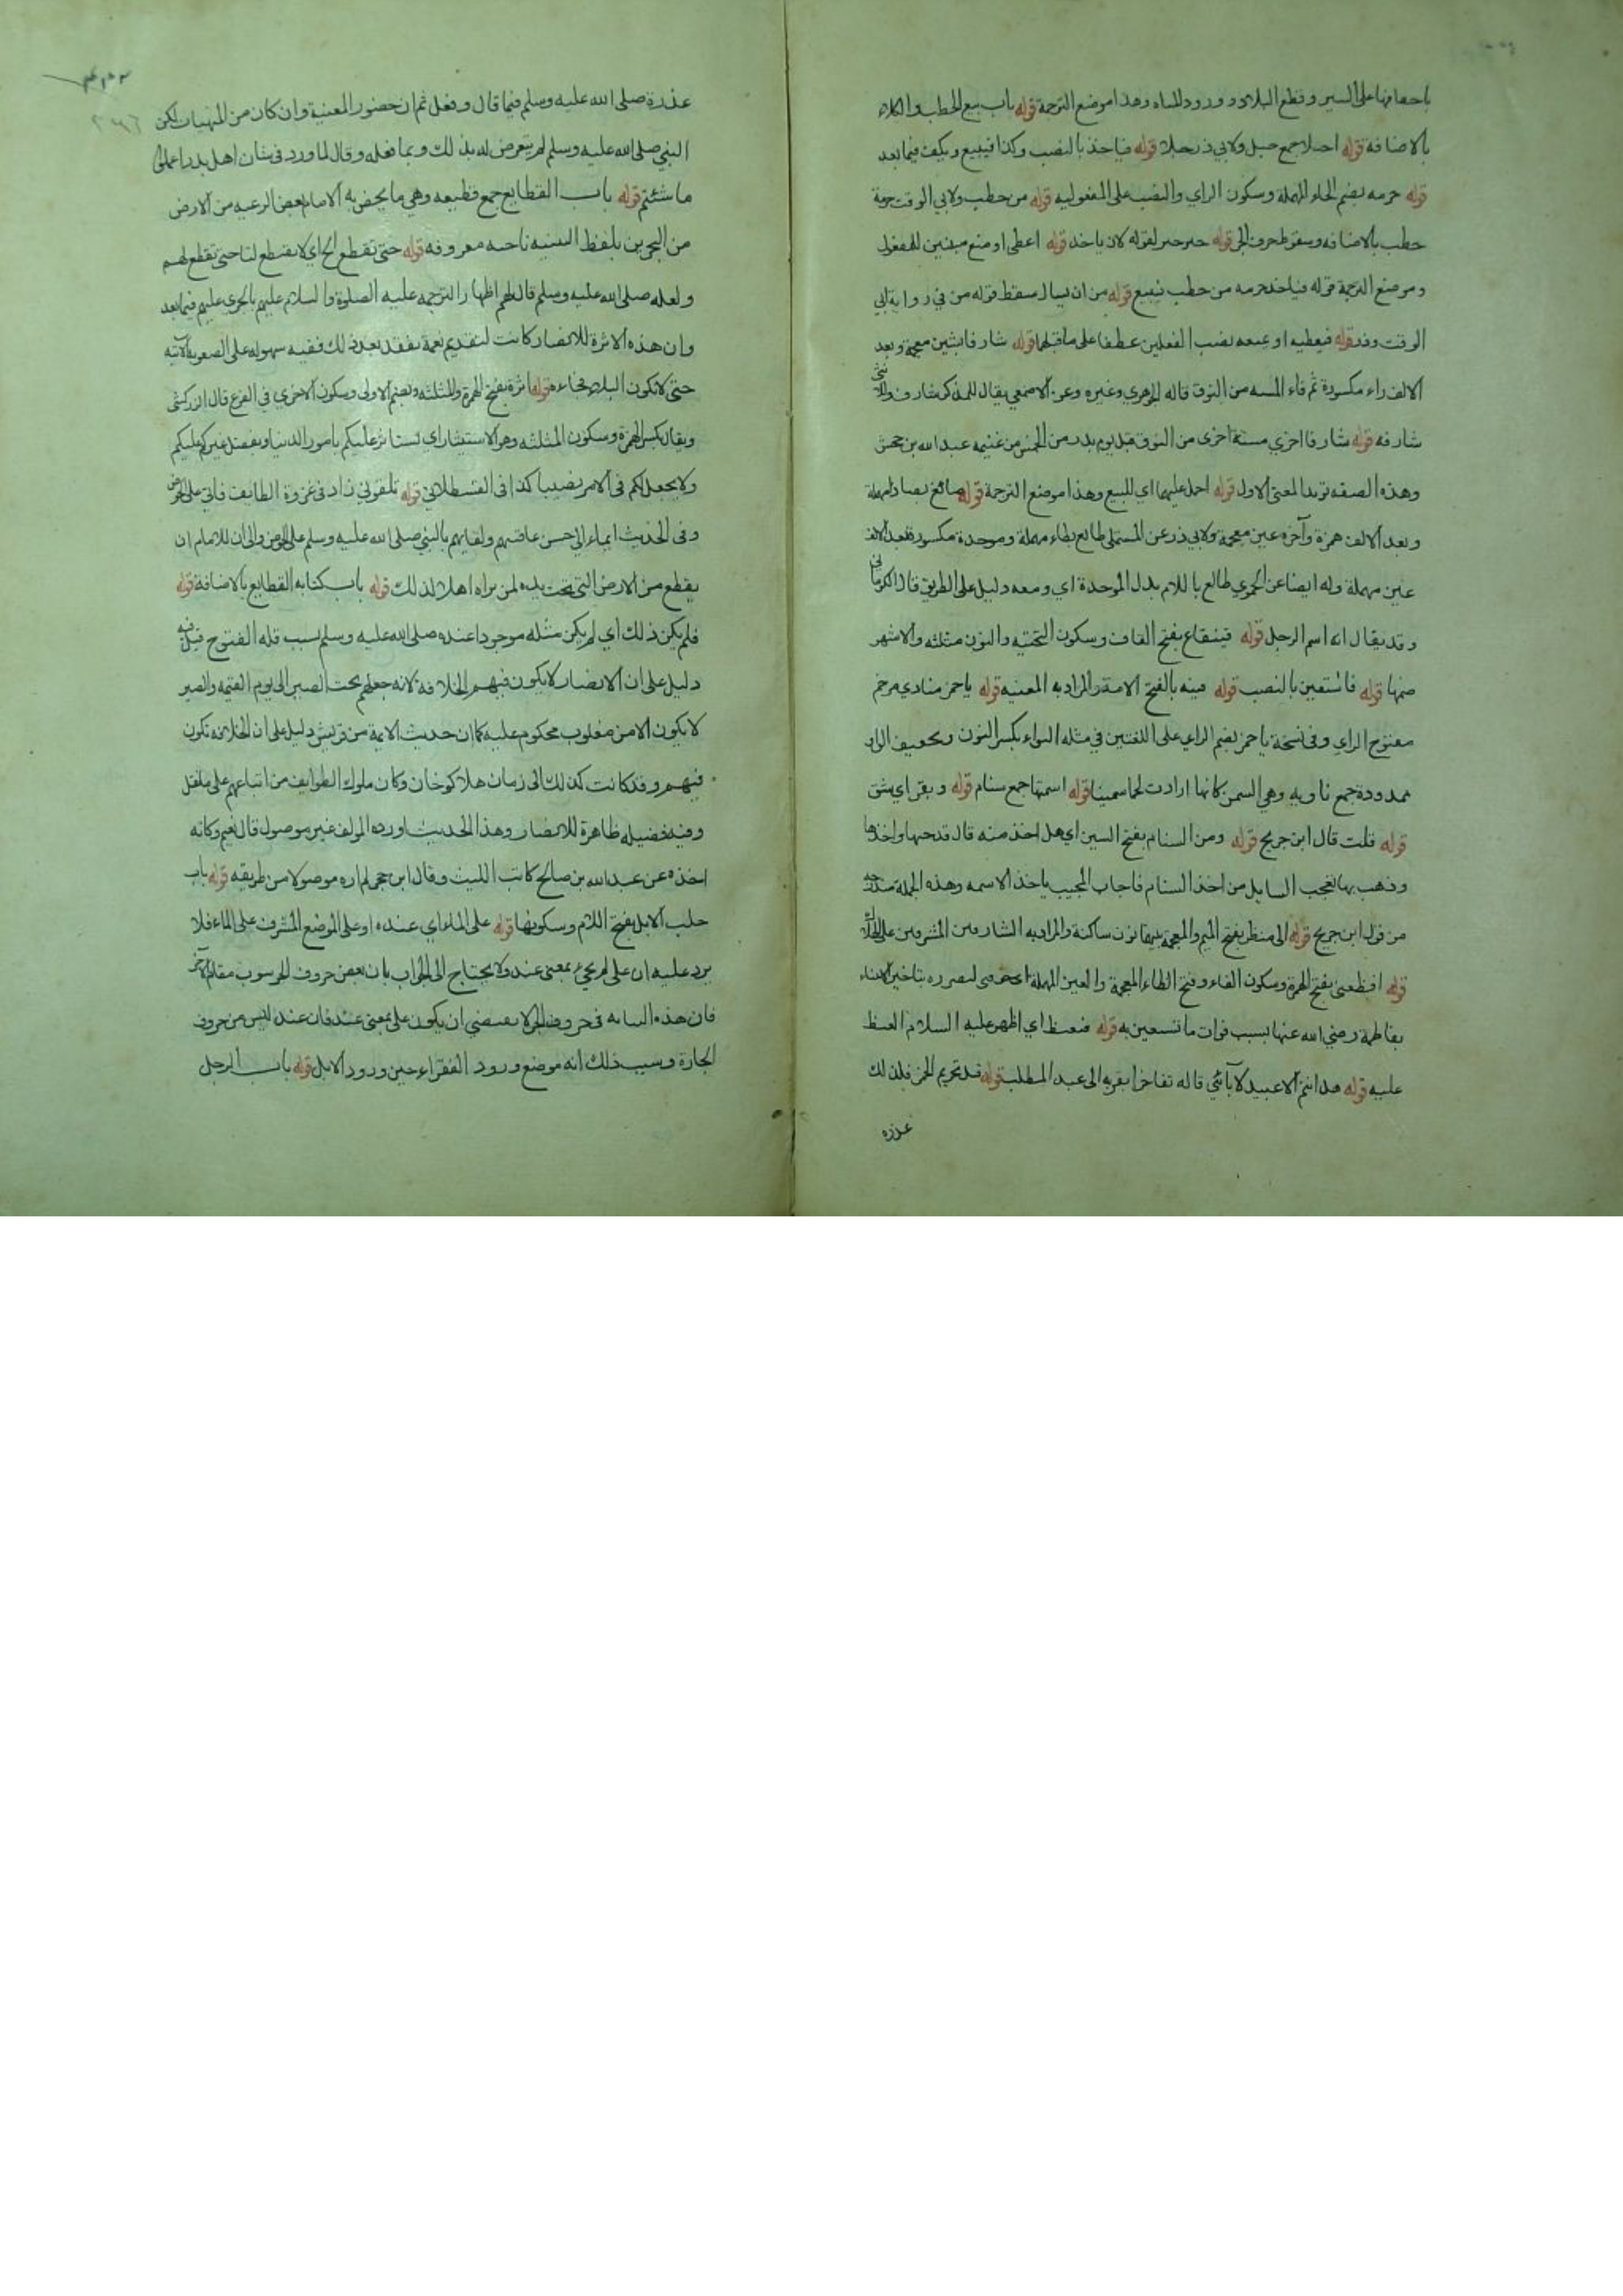 باخفافها على السير وقطع البلاد وورود المياه وهذا موضع الترجمة قوله باب بيع الحطب والكلاء
بالاضافة قوله احبلا جمع حبل ولابي ذر حبلا قوله فياخذ بالنصب وكذا فيبيع ويكف فيما بعد
قوله حزمه بضم الحاء المهملة وسكون الزاي والنصب على المفعوليه قوله من حطب ولابي الوقت حزمة
حطب بالاضافه وسقوط حرف الجر قوله خير خبر لقوله لان ياخذ قوله اعطى او منع مبنيين للمفعول
وموضع الترجمة قوله فياخذ حزمه من حطب فيبيع قوله من ان يسال سقط قوله من في رواية ابي
الوقت وذر قوله فيعطيه او يمنعه نصب الفعلين عطفا على ما قبلهما قوله شارفا بشين معجمة وبعد
الالف راء مكسورة ثم فاء المسنه من النوق قاله الجوهري وغيره وعن الاصمعي يقال للذكر شارف وللانثى
شارفه قوله شارفا اخرى مسنة اخرى من النوق قبل يوم بدر من الخمس من غنيمه عبد الله بن جحش
وهذه الصفه تويد المعنى الاول قوله احمل عليهما اي للبيع وهذا موضع الترجمة قوله صائغ بصاد مهملة
وبعد الالف همزة وآخره غين معجمة ولابي ذر عن المستملي طابع بطاء مهملة وموحدة مكسورة بعد الالف
عين مهملة وله ايضا عن الحموي طالع باللام بدل الموحدة اي ومعه دليل على الطريق قال الكرماني
وقد يقال انه اسم الرجل قوله قينقاع بفتح القاف وسكون التحتيه والنون مثلثه والاشهر
ضمها قوله فاستعين بالنصب قوله قينه بالفتح الامة والمراد به المغنيه قوله ياحمز منادي مرخم
مفتوح الزاي وفي نسخة ياحمز بضم الزاي على اللغتين في مثله النواء بكسر النون وتخفيف الواو
ممدودة جمع ناويه وهي السمن كانها ارادت لحما سمينا قوله اسنمتها جمع سنام قوله وبقر اي شق
قوله قلت قال ابن جريج قوله ومن السنام بفتح السين اي هل اخذ منه قال قد جبها واخذها
وذهب بها تعجب السايل من اخذ السنام فاجاب المجيب ياخذ الاسنمه وهذه الجملة مدرجه
من قول ابن جريج قوله الى منظر بفتح الميم والمعجمة بينهما نون ساكنة والمراد به الشاربين المشرفين على الهلاك
قوله افظعني بفتح الهمزة وسكون الفاء وفتح الظاء المعجمة والعين المهملة اي خوفني لتضرره بتاخير الابتناء
بفاطمة رضي الله عنها بسبب فوات ما تستعين به قوله فتغيظ اي اظهر عليه السلام الغيظ
عليه قوله هل انتم الا عبيد لابائي قاله تفاخرا بقربه الى عبد المطلب قوله قبل تحريم الخمر فلذلك
عذره
عذرة صلى الله عليه وسلم فيما قال وفعل ثم ان حضور المغنية وان كان من المنهيات لكن
النبي صلى الله عليه وسلم لم يتعرض له بذلك وبما فعله وقال لما ورد في شان اهل بدر اعملوا
ما شئتم قوله باب القطايع جمع قطيعه وهي ما يخص به الامام بعض الرعيه من الارض
من البحرين بلفظ التثنيه ناحيه معروفه قوله حتى تقطع الخ اي لا تقطع لنا حتى تقطع لهم
ولعله صلى الله عليه وسلم قال لهم اظهارا لتوجه عليه الصلوة والسلام عليهم بالجري عليهم فيما بعد
وان هذه الاثرة للانصار كانت لتقديم نعمة بفقد بعد ذلك ففيه سهوله على الصعوبة الآتيه
حتى لا تكون البلاء فجاءه قوله اثرة بفتح الهمزة والمثلثه وبضم الاولى وسكون الاخرى في الفرع قال الزركشي
ويقال بكسر الهمزة وسكون المثلثه وهو الاستيثار اي يستاثر عليكم بامور الدنيا ويفضل غيركم عليكم
ولا يجعل لكم في الامر نصيبا كذا في القسطلاني قوله تلقوني زاد في غزوة الطايف فاني على الحوض
وفي الحديث ايماء الي حسن عاقبتهم ولقايهم بالنبي صلى الله عليه وسلم على الحوض والى ان للامام ان
يقطع من الارض التي تحت يده لمن يراه اهلا لذلك قوله باب كتابه القطايع بالاضافة قوله
فلم يكن ذلك اي لم يكن مثله موجودا عنده صلى الله عليه وسلم بسبب قله الفتوح قيل فيه
دليل على ان الانصار لا يكون فيهم الخلافه لانه جعلهم تحت الصبر الى يوم القيمه والصبر
لا يكون الا من مغلوب محكوم عليه كما ان حديث الايمة من قريش دليل على ان الخلافه تكون
فيهم وقد كانت كذلك الى زمان هلاكو خان وكان ملوك الطوايف من اتباعهم على ما نقل
وفيه فضيله ظاهرة للانصار وهذا الحديث اورده المولف غير موصول قال نعيم وكانه
اخذه عن عبد الله بن صالح كاتب الليث وقال ابن حجر لم اره موصولا من طريقه قوله باب
حلب الابل بفتح اللام وسكونها قوله على الماء اي عنده او على الموضع المشرف على الماء فلا
يرد عليه ان على لم يجيء بمعنى عند ولا يحتاج الى الجواب بان بعض حروف الجر سوب مقام الآخر
فان هذه النيابه في حروف الجر لا يقتضي ان يكون على بمعنى عند فان عند ليس من حروف
الجارة وسبب ذلك انه موضع ورود الفقراء حين ورود الابل قوله باب الرجل